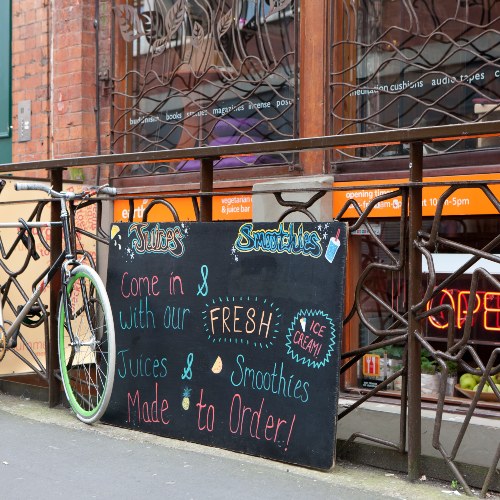 books statues magazines incense
meditation cushions audio tapes
vegetarian
& juice bar
opening times
10am-5pm
Juices Smoothies
Come in &
with our FRESH
ICE
CREAM!
Juices & Smoothies
Made to Order!
OPE